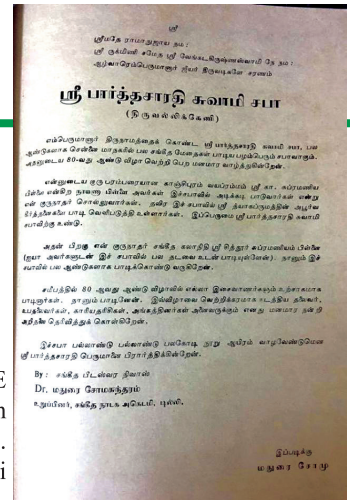 ஸ்ரீ
ஸ்ரீமதே ராமாநுஜாய நம:
ஸ்ரீ ருக்மிணி சமேத ஸ்ரீ வேங்கடகிருஷ்ணஸ்வாமி நே நம:
ஆழ்வாரெம்பெருமானார் ஜீயர் திருவடிகளே சரணம்
ஸ்ரீ பார்த்தசாரதி சுவாமி சபா
(திருவல்லிக்கேணி)
எம்பெருமானார் திருநாமத்தைக் கொண்ட ஸ்ரீ பார்த்தசாரதி சுவாமி சபா, பல
ஆண்டுகளாக சென்னை மாநகரில் பல சங்கீத மேதைகள் பாடிய பழம்பெரும் சபாவாகும்.
அதனுடைய 80-வது ஆண்டு விழா வெற்றி பெற மனமார வாழ்த்துகின்றேன்.
என்னுடைய குரு பரம்பரையான காஞ்சிபுரம் நயாப்ரம்மம் ஸ்ரீ கா. சுப்ரமணிய
பிள்ளை என்கிற நாயனா பிள்ளை அவர்கள் இச்சபாவில் அடிக்கடி பாடுவார்கள் என்று
என் குருநாதர் சொல்லுவார்கள். தவிர இச் சபாவில் ஸ்ரீ த்யாகப்ரம்மத்தின் அபூர்வ
கீர்த்தனைகளை பாடி வெளிபடுத்தி உள்ளார்கள். இப்பெருமை ஸ்ரீ பார்த்தசாரதி சுவாமி
சபாவிற்கு உண்டு.
அதன் பிறகு என் குருநாதர் சங்கீத கலாநிதி ஸ்ரீ சித்தூர் சுப்ரமணியம் பிள்ளை
(ஐயா அவர்களுடன் இச் சபாவில் பல தடவை உடன் பாடியுள்ளேன்). நானும் இச்
சபாவில் பல ஆண்டுகளாக பாடிக்கொண்டு வருகிறேன்.
சமீபத்தில் 80 ஆவது ஆண்டு விழாவில் எல்லா இசைவாணர்களும் உற்சாகமாக
பாடினார்கள். நானும் பாடினேன். இவ்விழாவை வெற்றிகரமாக நடத்திய தலைவர்,
உபதலைவர்கள், காரியதரிசிகள், அங்கத்தினர்கள் அனைவருக்கும் எனது மனமார நன்றி
அறிதலை தெரிவித்துக் கொள்கிறேன்.
இச்சபா பல்லாண்டு பல்லாண்டு பலகோடி நூறு ஆயிரம் வாழவேண்டுமென
ஸ்ரீ பார்த்தசாரதி பெருமானை பிரார்த்திக்கின்றேன்.
By: சங்கீத பீடஸ்வர நிவாஸ்
Dr. மதுரை சோமசுந்தரம்
உறுப்பினர், சங்கீத நாடக அகெடமி, டில்லி.
இப்படிக்கு
மதுரை சோமு
E
n
.
i